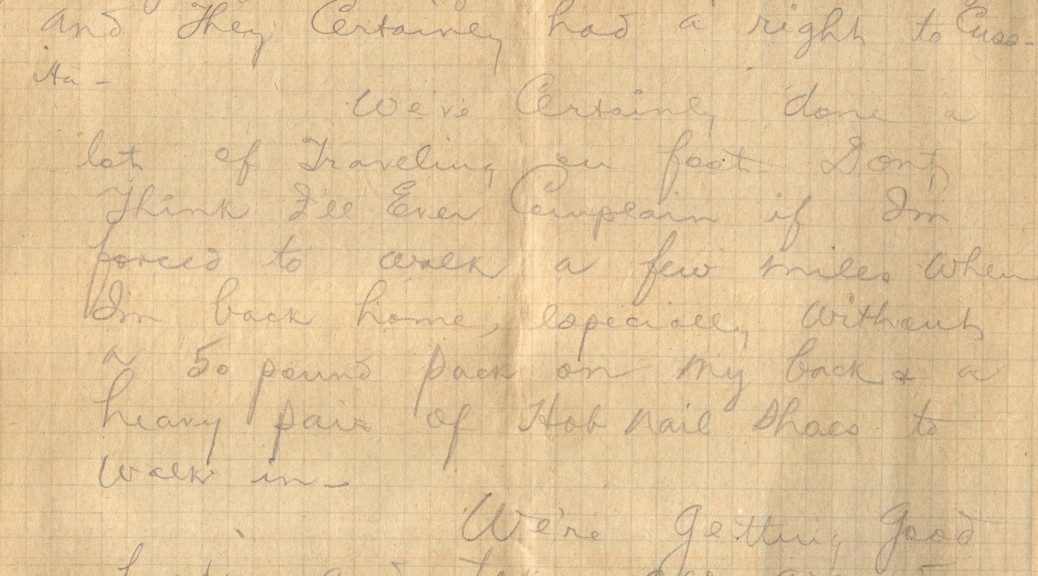 and They Certainly had a right to Cuss-
Ha -
We've Certainly done a
lot of Traveling on foot. Dont
Think I'll Ever Complain if Im
forced to walk a few miles when
Im back home, especially without
a 50 pound pack on my back & a
heavy pair of Hob nail Shoes to
walk in -
We're getting good